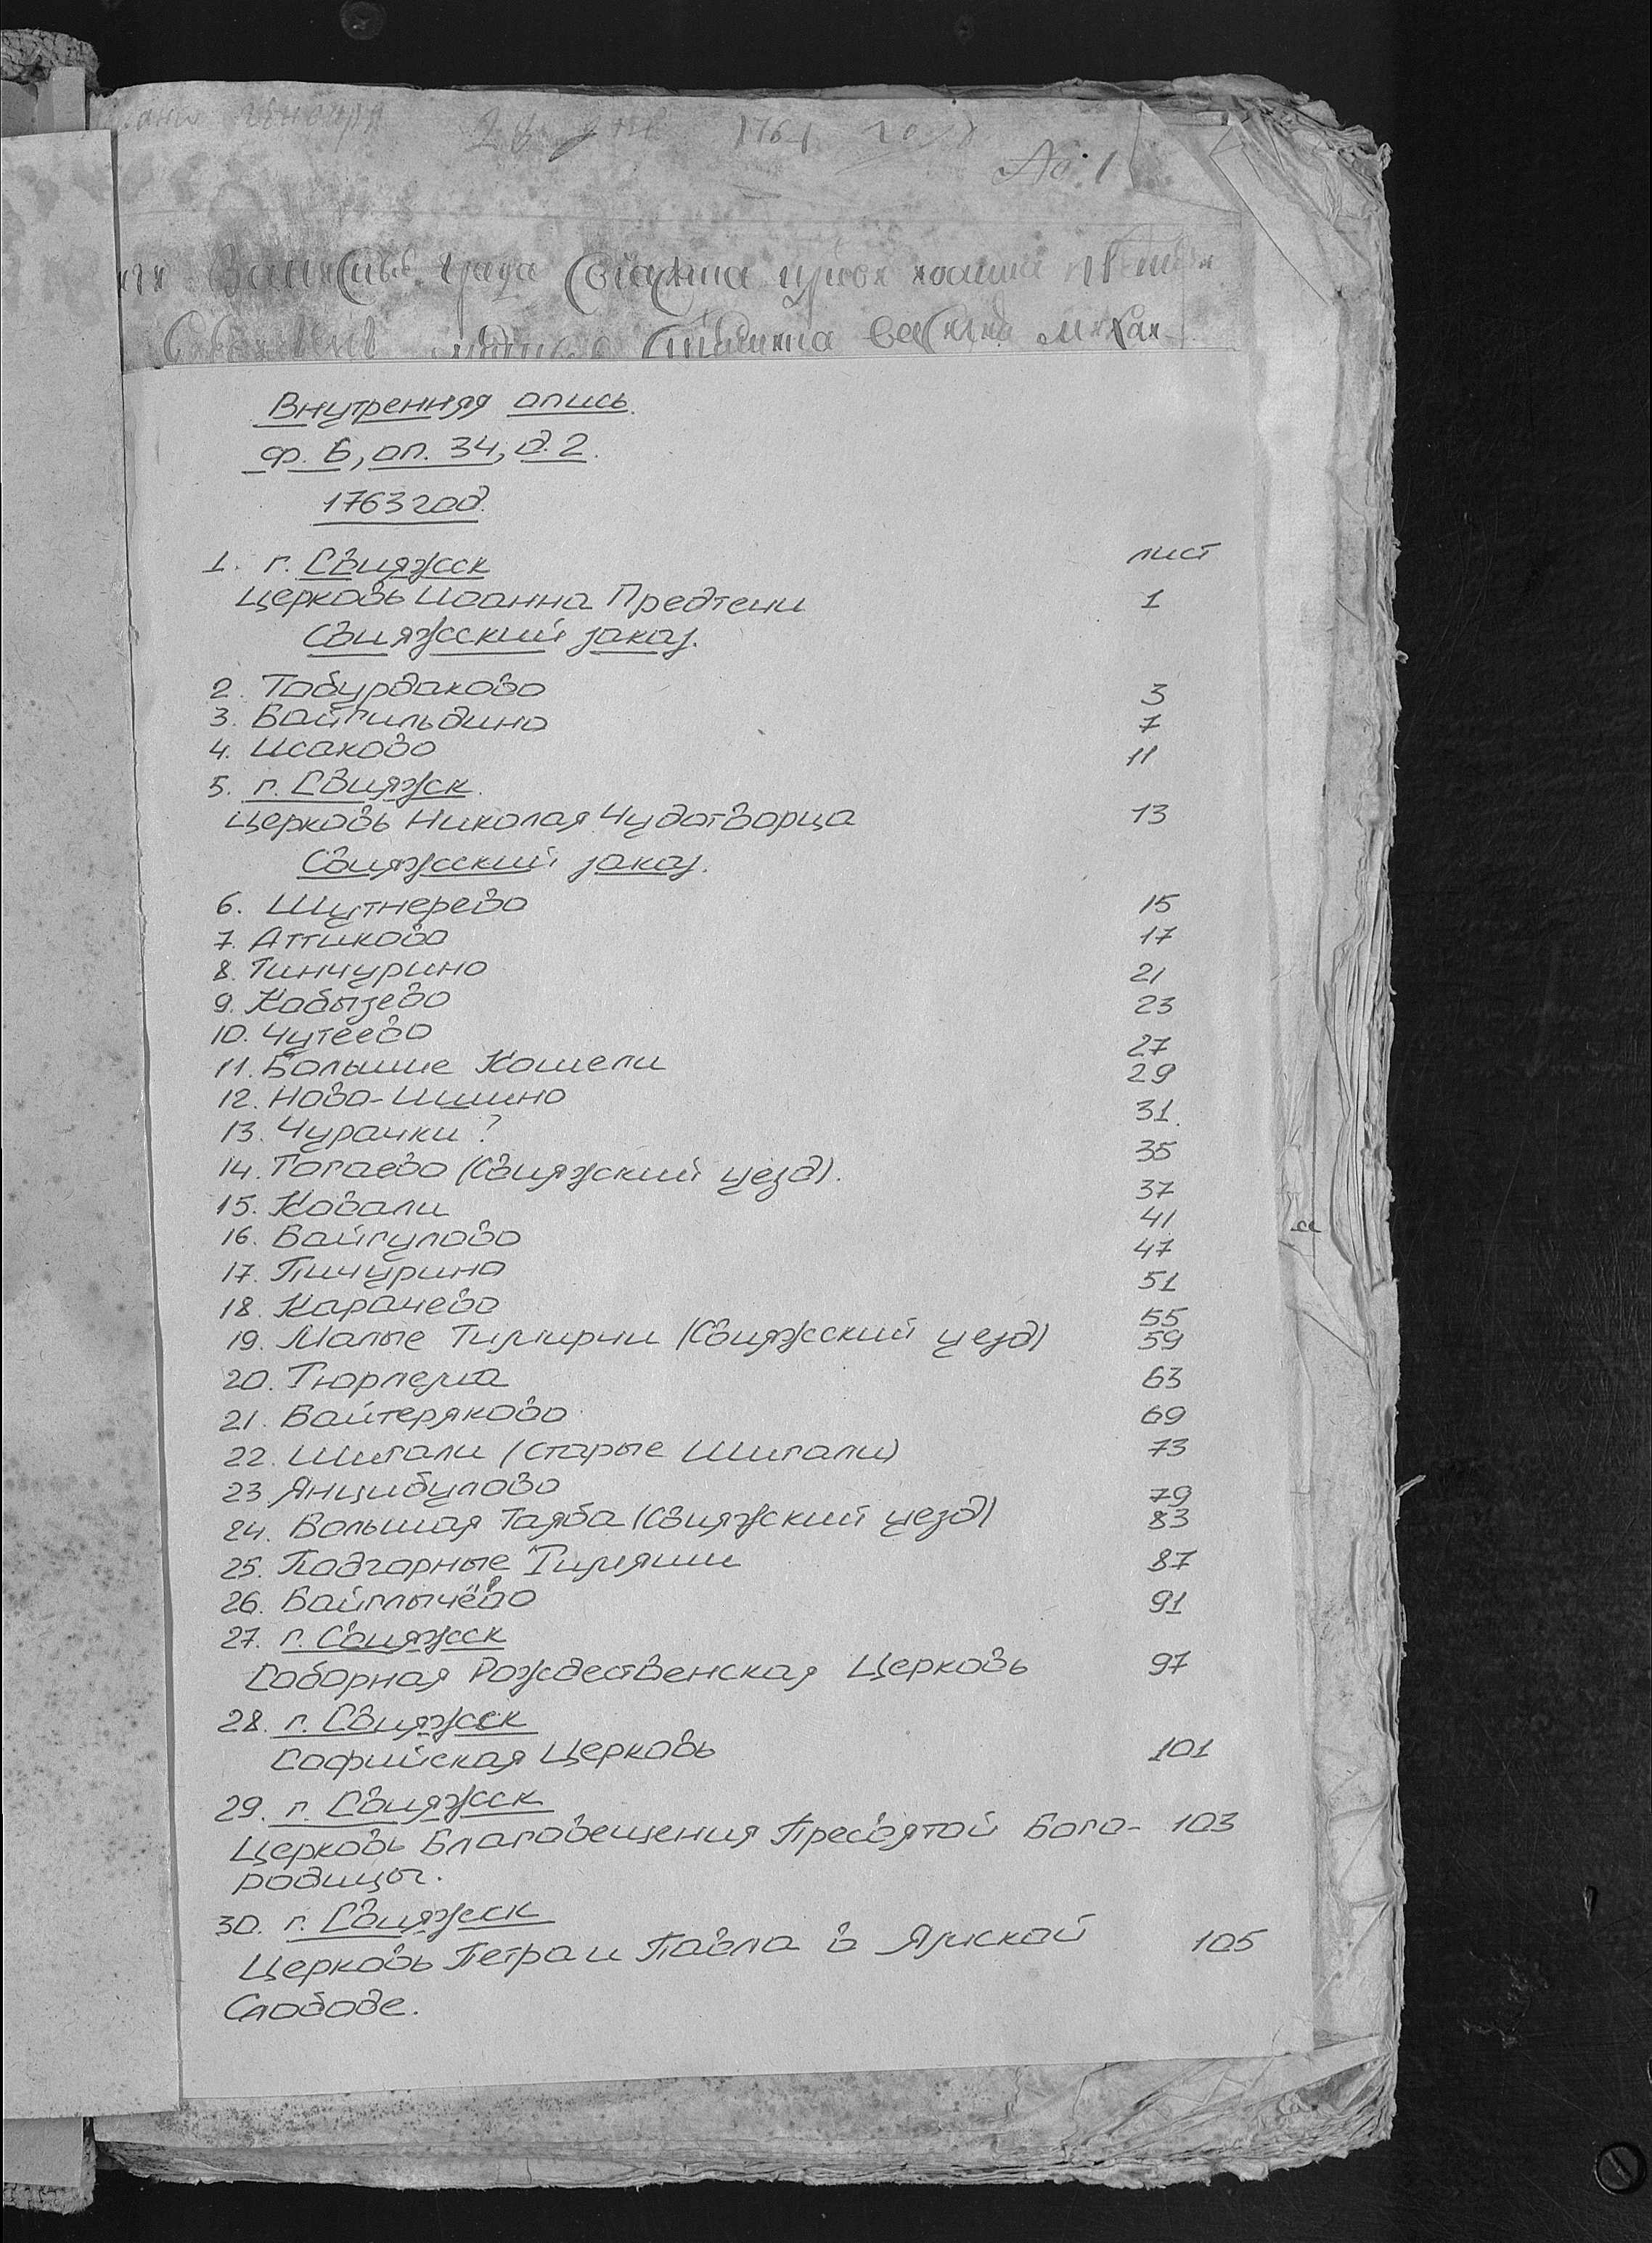 1764 году
№ 1
града Свияжска
Внутренняя опись.
ф. 6, оп. 34, д. 2.
1763 год.
лист
1. г. Свияжсск
Церковь Иоанна Предтечи 1
Свияжсский заказ.
2. Табурдаково 3
3. Байгильдино 7
4. Исаково 11
5. г. Свияжск.
Церковь Николая Чудотворца 13
Свияжсский заказ.
6. Шутнерево 15
7. Аттиково 17
8. Тинчурино 21
9. Кобызево 23
10. Чутеево 27
11. Большие Кошели 29
12. Ново-Ишино 31.
13. Чурачки? 35
14. Тогаево (Свияжский уезд). 37
15. Ковали 41
16. Байгулово 47
17. Пичурино 51
18. Карачево 55
19. Малые Тимирчи (Свияжсский уезд) 59
20. Тюрлема 63
21. Байтеряково 69
22. Шигали (Старые Шигали) 73
23. Янцибулово 79
24. Большая Таяба (Свияжский уезд) 83
25. Подгорные Тимяши 87
26. Байглычёво 91
27. г. Свияжсск
Соборная Рождественская Церковь 97
28. г. Свияжсск
Софийская Церковь 101
29. г. Свияжсск
Церковь Благовещения Пресвятой Бого- 103
родицы.
30. г. Свияжсск
Церковь Петра и Павла в Ямской 105
Слободе.